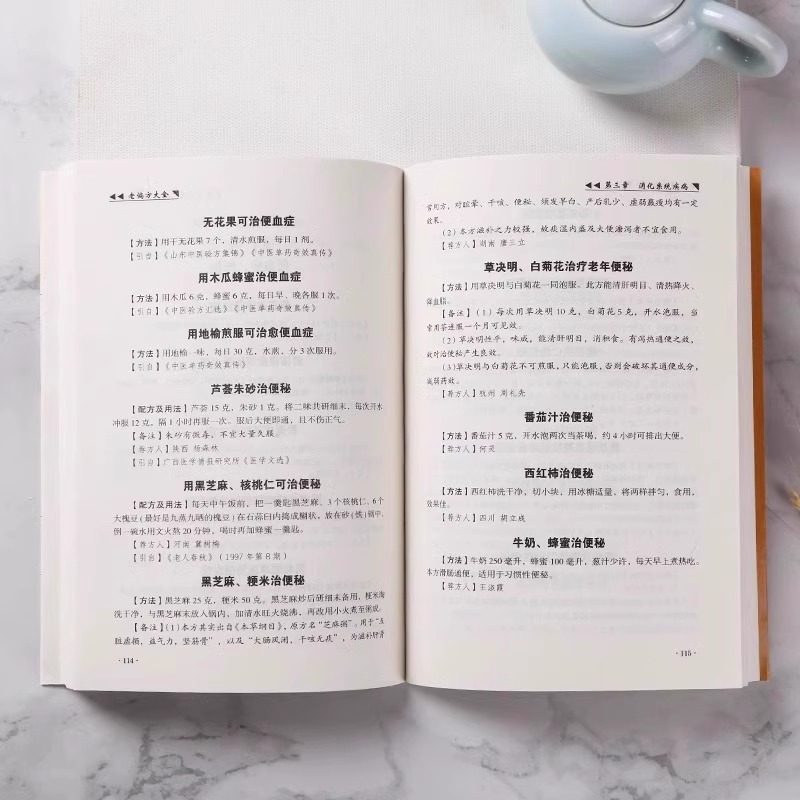 老偏方大全
无花果可治便血症
【方法】用干无花果7个，清水煎服，每日1剂。
【引自】《山东中医验方集锦》《中医单药奇效真传》
用木瓜蜂蜜治便血症
【方法】用木瓜6克，蜂蜜6克，每日早、晚各服1次。
【引自】《中医验方汇选》《中医单药奇效真传》
用地榆煎服可治愈便血症
【方法】用地榆一味，每日30克，水煎，分3次服用。
【引自】《中医单药奇效真传》
芦荟朱砂治便秘
【配方及用法】芦荟15克，朱砂1克。将二味共研细末，每次开水
冲服12克，隔1小时再服一次。服后大便即通，且不伤正气。
【备注】朱砂有微毒，不宜大量久服。
【荐方人】陕西 杨森林
【引自】广西医学情报研究所《医学文选》
用黑芝麻、核桃仁可治便秘
【配方及用法】每天中午饭前，把一羹匙黑芝麻、3个核桃仁、6个
大槐豆（最好是九蒸九晒的槐豆）在石蒜臼内捣成糊状，放在砂（铁）锅中，
倒一碗水用文火熬20分钟，喝时再加蜂蜜一羹匙。
【荐方人】河南 冀树梅
【引自】《老人春秋》（1997年第8期）
黑芝麻、粳米治便秘
【方法】黑芝麻25克，粳米50克。黑芝麻炒后研细末备用，粳米淘
洗干净，与黑芝麻末放入锅内，加清水旺火烧沸，再改用小火煮至粥成。
【备注】（1）本方其实出自《本草纲目》，原方名“芝麻粥”。用于“五
脏虚损，益气力，坚筋骨”，以及“大肠风闭，干咳无痰”，为滋补肝肾
·114·
第三章 消化系统疾病
常用方，对眩晕、干咳、便秘、须发早白、产后乳少、虚弱羸瘦均有一定
效果。
（2）本方滋补之力较强，故痰湿内盛及大便溏泻者不宜食用。
【荐方人】湖南 唐三立
草决明、白菊花治疗老年便秘
【方法】用草决明与白菊花一同泡服。此方能清肝明目、清热降火、
降血脂。
【备注】（1）每次用草决明10克，白菊花5克，开水泡服，当
常用茶连服一个月可见效。
（2）草决明性平，味咸，能清肝明目，消积食。有泻热通便之效，
故对治便秘产生良效。
（3）草决明与白菊花不可煎服，只能泡服，否则会破坏其通便成分，
减弱药效。
【荐方人】杭州 周礼先
番茄汁治便秘
【方法】番茄汁5克、开水泡两次当茶喝，约4小时可排出大便。
【荐方人】何灵
西红柿治便秘
【方法】西红柿洗干净，切小块，用冰糖适量，将两样拌匀，食用，
效果佳。
【荐方人】四川 胡立成
牛奶、蜂蜜治便秘
【方法】牛奶250毫升，蜂蜜100毫升，葱汁少许，每天早上煮热吃。
本方滑肠通便，适用于习惯性便秘。
【荐方人】王淑霞
·115·